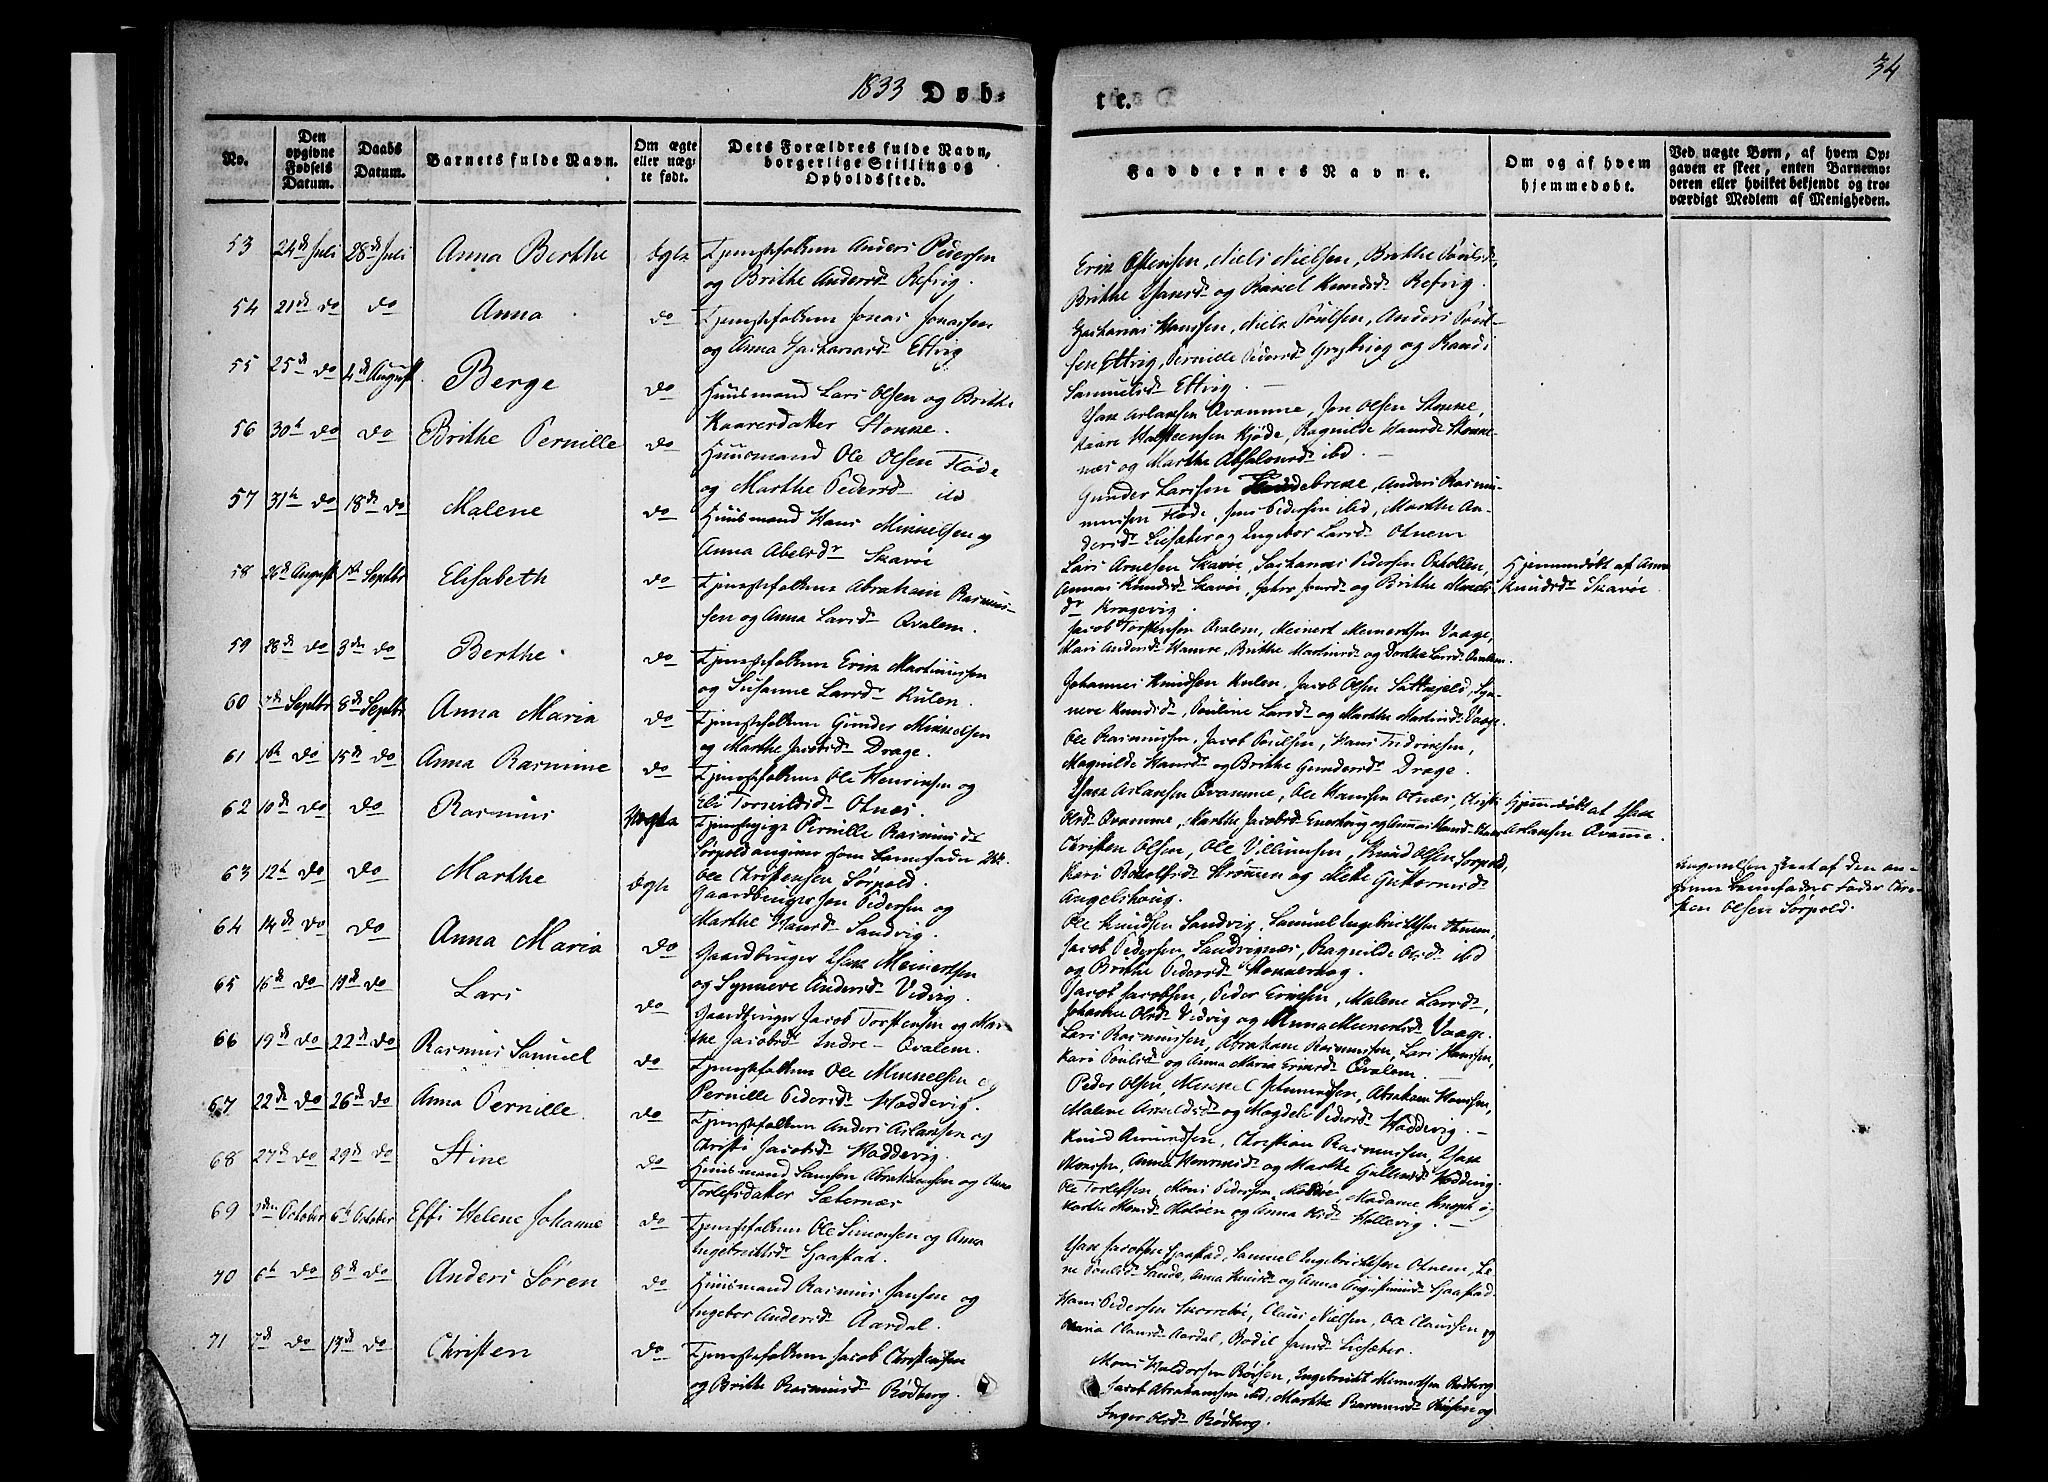 1833 Døb-
te.
34
No.
Den opgivne Fødsels Datum.
Daabs Datum.
Barnets fulde Navn.
Om ægte eller uægte født.
Dets Forældres fulde Navn, borgerlige Stilling og Opholdssted.
Faddernes Navne.
Om og af hvem hjemmedøbt.
Ved uægte Børn, af hvem Opgaven er skeet, enten Barnemoderen eller hvilket bekjendt og troværdigt Medlem af Menigheden.
53 24de Juli 28de Juli Anna Berthe Ægte Tjenestefolkene Anders Pedersen
og Brithe Andersd. Refvig.
Erik Ostensen, Niels Nielsen, Brithe Poulsd.,
Brithe Isaksd. og Rakel Knudsd. Refvig.
54 21de do do Anna do Tjenestefolkene Jonas Jonassen
og Anna Zachariasd. Ettvig
Zacharias Hanssen, Niels Poulsen, Anders Poul-
sen Ettvig, Pernille Pedersd. og Randi
Samuelsd. Ettvig.
55 25de do 4de August Berge do Huusmand Lars Olsen og Brithe
Kaaresdatter Stokke.
Isak Arlaksen Qvamme, Jon Olsen Stokke,
Kaare Halsteensen Kjøde, Ragnilde Hansd. Stokke-
næs og Marthe Absalonsd. ibd.
56 30te do do Brithe Pernille do Huusmand Ole Olsen Flode
og Marthe Pedersd. ibd
Gunder Larssen Anders Rasmu-
mussen Flode, Jens Pedersen ibd, Marthe An-
dersd. Liesæter og Ingebor Larsd. Otnem
57 31te do 18de do Malene do Huusmand Hans Mikkelsen og
Anna Abelsd. Skavøe
Lars Arnesen Skavøe, Zacharias Pedersen Osholten,
Annas Knudsd. Skavøe, og Brithe
d. Kragevig.
Hjemmedøbt af Anna
Knudsd. Skavøe
58 26de August 1ste Septbr Elisabeth do Tjenestefolkene Abraham Rasmus-
sen og Anna Larsd. Qvalem.
Jacob Torstensen Qvalem, Meinert Meinertsen Vaage,
Kari Andersd. Hamre, Brithe Martinsd. og Dorthe Larsd. Qvalem.
59 28de do 3die do Berthe do Tjenestefolkene Erik Martinussen
og Susanne Larsd. Kulen.
Johannes Knudsen Kulen, Jacob Olsen Sættefjeld, Syn-
neve Knudsd., Pouline Larsd. og Marthe Martinsd. Vaage.
60 7de Septbr 8de Septbr Anna Maria do Tjenestefolkene Gunder Mikkelsen
og Marthe Jacobsd. Drage.
Ole Rasmussen, Jacob Poulsen, Hans Fridriksen,
Magnilde Hansd. og Brithe Gundersd. Drage.
61 do 15de do Anna Rasmine do Tjenestefolkene Ole Henriksen og
Eli Tornildsd. Otnes.
Isak Arlaksen Qvamme, Ole Hanssen Otnæs,
Olsd. Qvamme, Marthe Jacobsd.
Hjemmedøbt af Isak
Arlaksen Qvamme.
62 10de do do Rasmus Uægte Tjenestepige Pernille Rasmusd.
Sørpold angiver som Barnefader
Ole Christensen Sørpold.
Christen Olsen, Ole Villumsen, Knud Olsen Sørpold,
Kari Rodolfsd. Strømmen og Mette Guttormsd.
Angelshoug.
Angivelsen skeet af den an-
givne Barnefaders Fader Chri-
sten Olsen Sørpold.
63 12te do do Marthe Ægte Gaardbruger Jon Pedersen og
Marthe Hansd. Sandvig.
Ole Knudsen Sandvig, Samuel Ingebrichtsen
Jacob Pedersen Sandvignæs, Ragnilde Olsd. ibd
og Brithe Pedersd. Stokkevog.
64 14de do do Anna Maria do Gaardbruger Isak Meinertsen
og Synneve Andersd. Vedvig.
Jacob Jacobsen, Peder Eriksen, Malene Larsd.,
Johanne Olsd. Vedvig og Anna Meinertsd. Vaage.
65 16de do 19de do Lars do Gaardbruger Jacob Torstensen og Mar-
the Jacobsd. Indre-Qvalem.
Lars Rasmussen, Abraham Rasmussen, Lars Hanssen,
Kari Poulsd. og Anna Maria Eriksd. Qvalem.
66 19de do 22de do Rasmus Samuel do Tjenestefolkene Ole Mikkelsen og
Pernille Pedersd. Hoddevig.
Peder Olsen, Mikkel Johannessen, Abraham Hanssen,
Malene Arnoldsd. og Magdele Pedersd. Hoddevig.
67 22de do 26de do Anna Pernille do Tjenestefolkene Anders Arlaksen og
Christi Jacobsd. Hoddevig.
Knud Asmundsen, Christian Rasmussen, Isak
Monssen, Anna og Marthe Hoddevig.
68 27de do 29de do Stine do Huusmand Samson Abrahamsen og Anne
Torlefsdatter Sæternæs
Ole Torlefsen, Mons Pedersen, Moldøe, Madame Knoph og
Marthe Monsd. Moldøen og Anna Olsd. Hollevig.
69 2den October 6te October Effi Helene Johanne do Tjenestefolkene Ole Simonsen og Anna
Ingebrichtsd. Hjaastad.
Isak Jacobsen Hjaastad, Samuel Ingebrichtsen Otnem, Le-
ne Poulsd. Sande, Anna Knudsd. og Anna Augustinusd. Hjaastad.
70 6te do 8de do Anders Søren do Huusmand Rasmus Jansen og
Ingebor Andersd. Aardal.
Hans Pedersen Skorrebøe, Claus Nielsen, Ole Claussen og
Maria Clausd. Aardal, Bodil Jansd. Liesæter.
71 7de do 13de do Christen do Tjenestefolkene Jacob Christensen
og Brithe Rasmusd. Rødberg.
Mons Haldorsen Røisen, Ingebricht Meinertsen Rødberg
Jacob Abrahamsen ibd, Marthe Rasmusd. Røisen og
Inger Olsd. Rødberg.